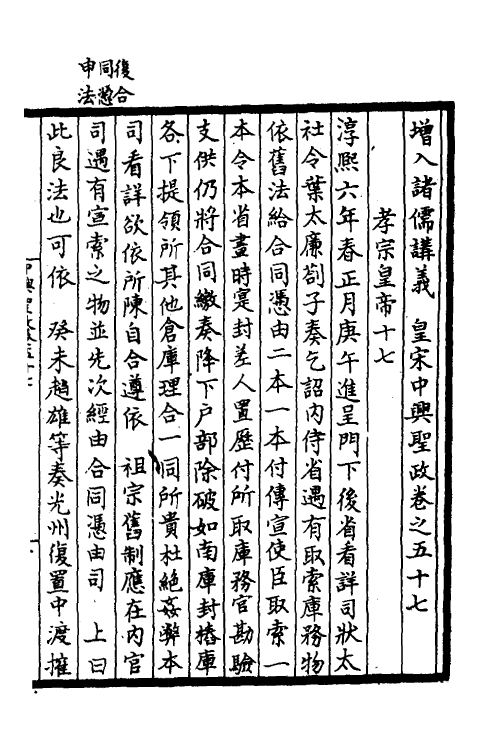 增入諸儒講義　皇宋中興聖政卷之五十七
孝宗皇帝十七
淳熙六年春正月庚午進呈門下後省看詳司狀太
社令葉太廉劄子奏乞詔內侍省遇有取索庫務物
依舊法給合同憑由二本一本付傳宣使臣取索一
本令本省畫時寔封差人置歷付所取庫務官勘驗
支供仍將合同繳奏降下戶部除破如南庫封樁庫
各下提領所其他倉庫理合一同所貴杜絕姦弊本
司看詳欲依所陳自合遵依　祖宗舊制應在內官
司遇有宣索之物並先次經由合同憑由司　上曰
此良法也可依　癸未趙雄等奏光州復置中渡榷
復合
同憑
申法